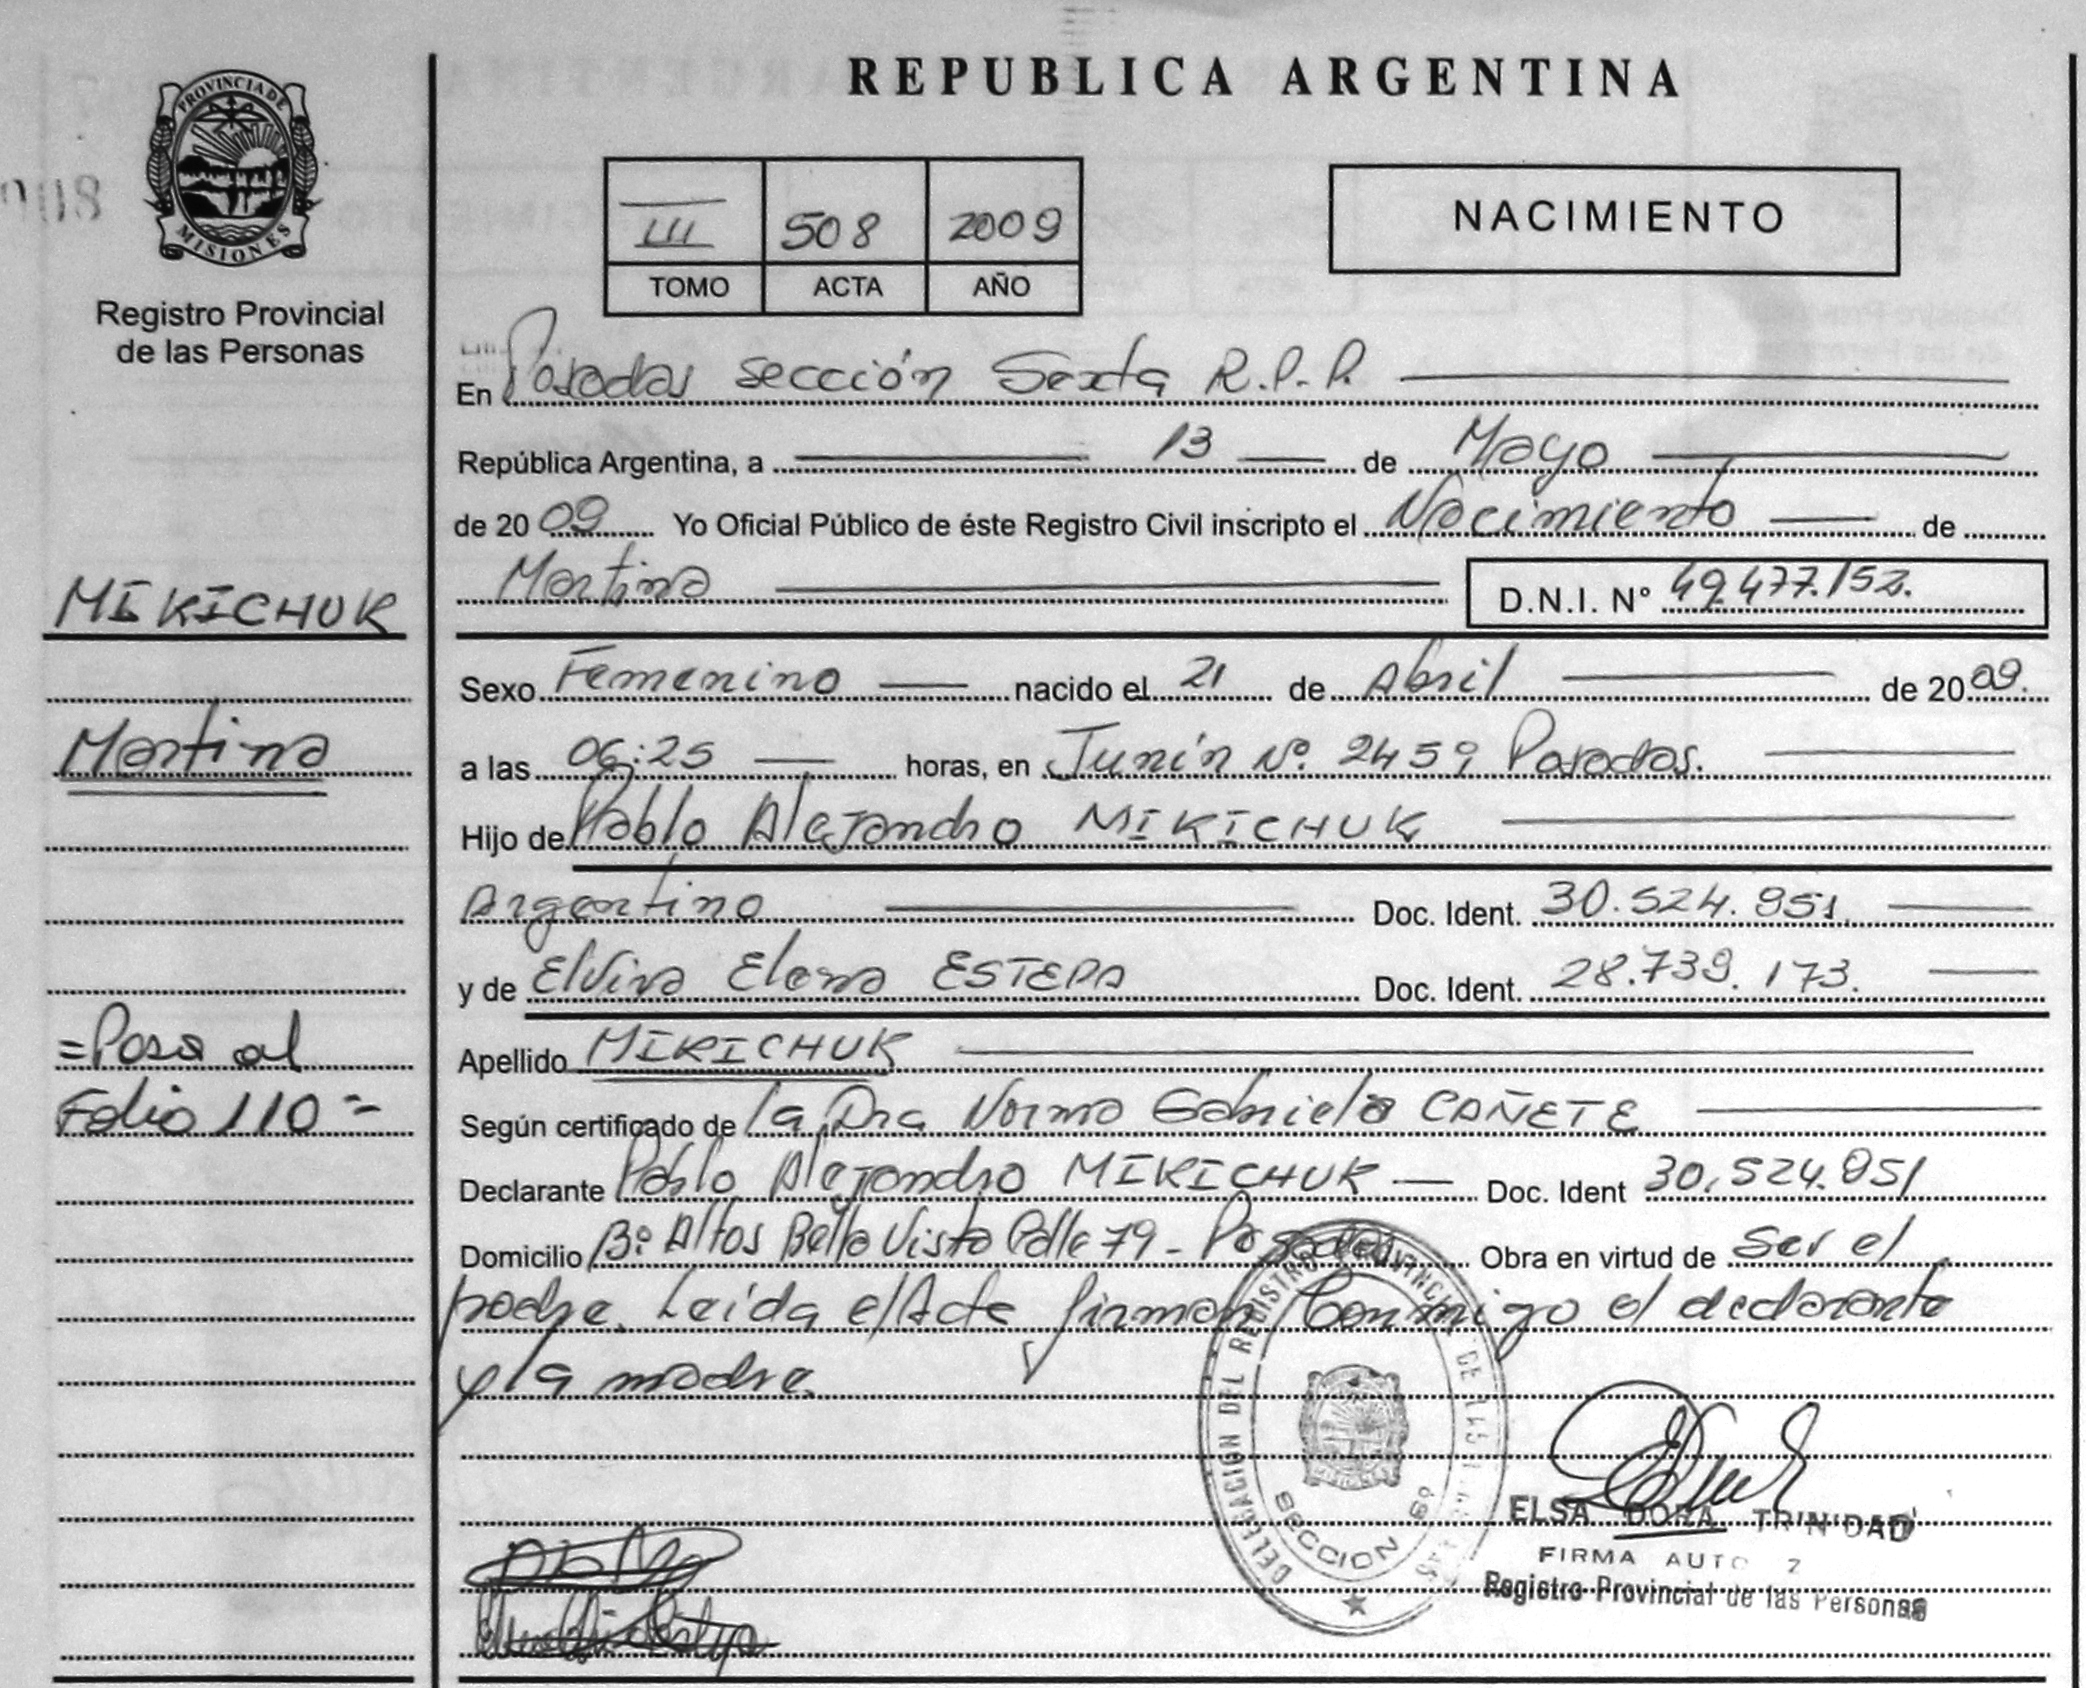 REPUBLICA ARGENTINA
PROVINCIA DE
MISIONES
Registro Provincial
de las Personas
III 508 2009
TOMO ACTA AÑO
NACIMIENTO
En Posadas sección Sexta R.P.P.
República Argentina, a 13 de Mayo
de 2009 Yo Oficial Público de éste Registro Civil inscripto el Nacimiento de
Martina D.N.I. N° 49.477.152.
MIKICHUK
Sexo Femenino nacido el 21 de Abril de 2009.
Martina
a las 06:25 horas, en Junín Nº. 2459 Posadas.
Hijo de Pablo Alejandro MIKICHUK
Argentino Doc. Ident. 30.524.951.
y de Elvira Elena ESTEPA Doc. Ident. 28.739.173.
=Pasa al
Folio 110=
Apellido MIKICHUK
Según certificado de la Dra Norma Gabriela CAÑETE
Declarante Pablo Alejandro MIKICHUK Doc. Ident 30.524.951
Domicilio Bº. Altos Bella Vista Calle 79 - Posadas Obra en virtud de Ser el
padre. Leída el Acta firman Conmigo el declarante
y la madre.
DELEGACION DEL REGISTRO PROVINCIAL DE LAS
SECCION 6º
ELSA DORA TRINIDAD
FIRMA AUTO
Registro Provincial de las Personas